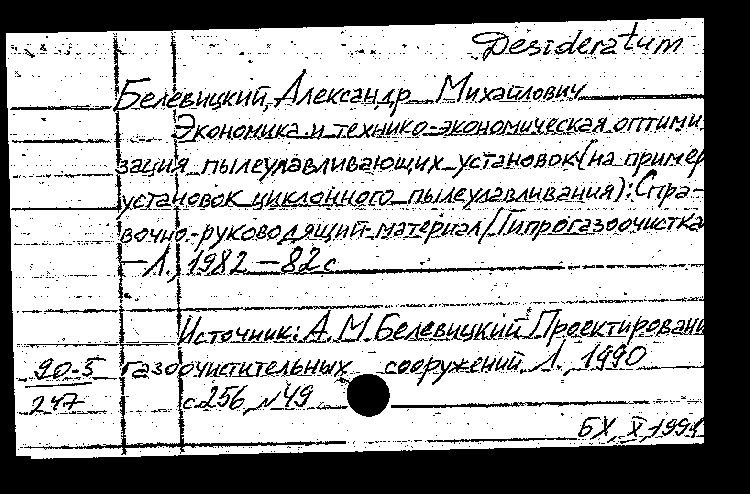 Desideratum
Белевицкий, Александр Михайлович
Экономика и технико-экономическая оптими
зация пылеулавливающих установок (на пример
установок циклонного пылеулавливания): Спра-
вочно-руководящий материал/Гипрогазоочистка
— Л., 1982 — 82 с
Источник: А. М. Белевицкий Проектировани
90-5 газоочистительных сооружений, Л., 1990
247 с 256, №49
БХ, X, 1991